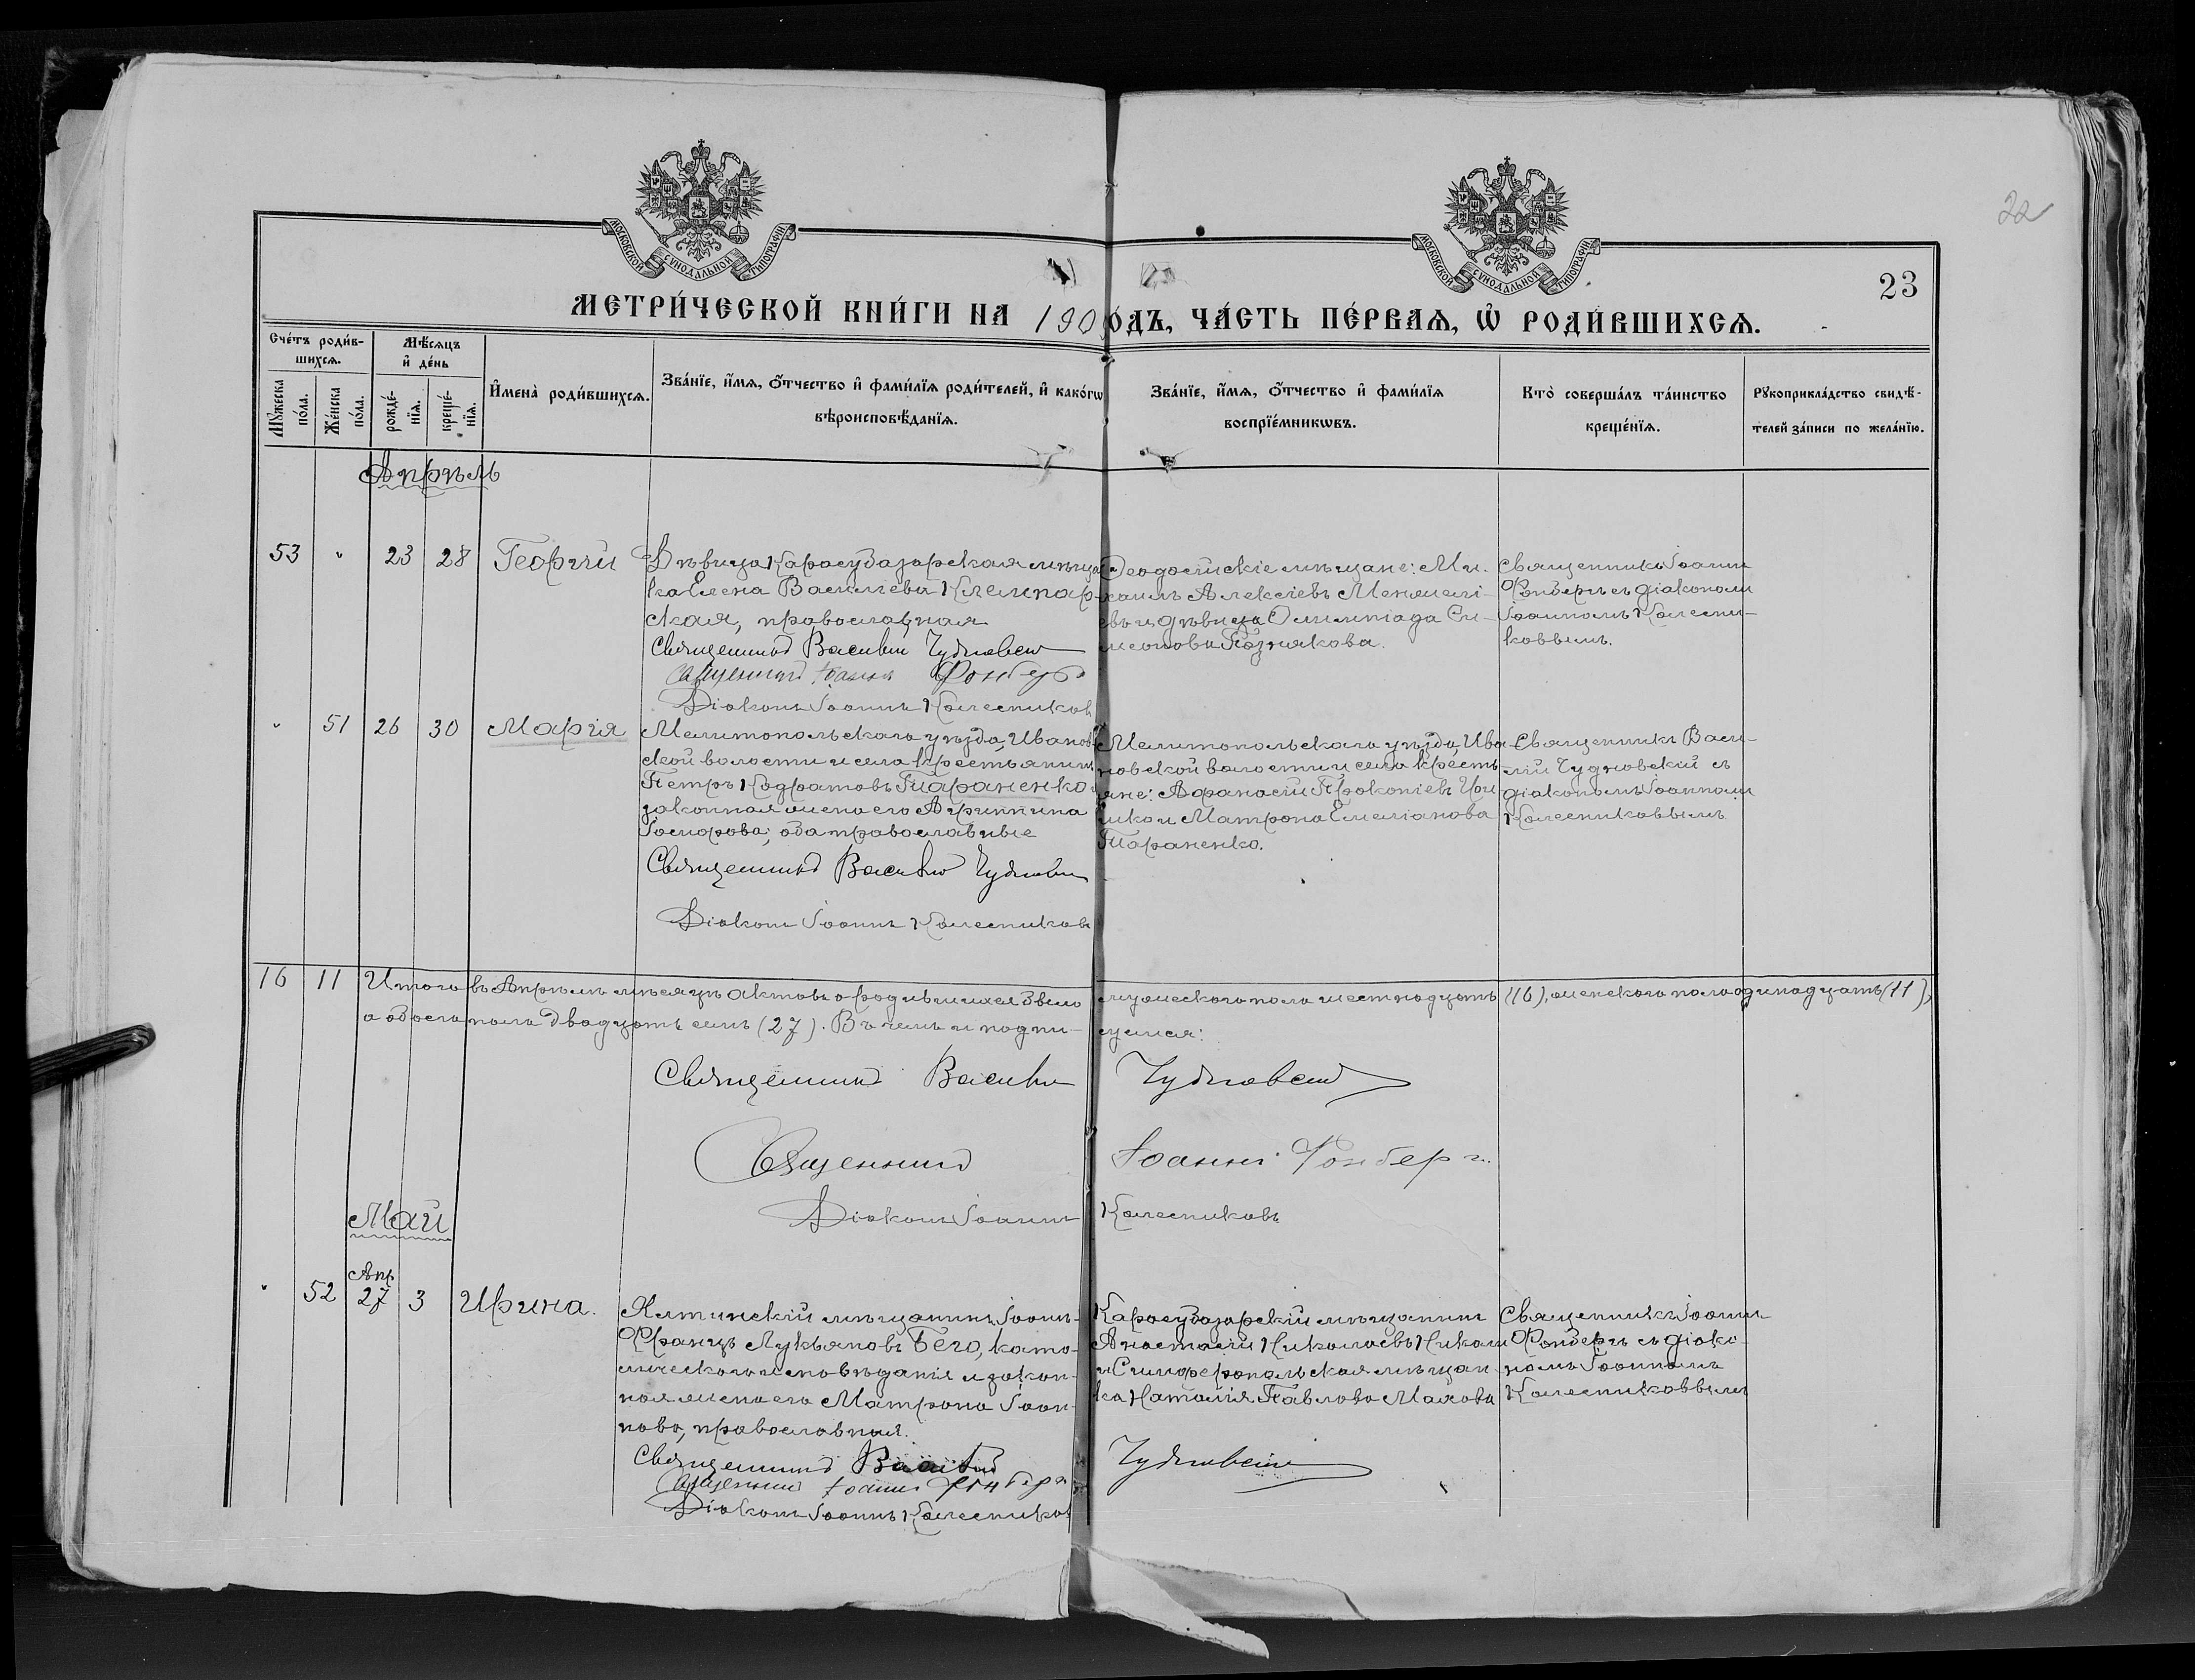 22
23
МОСКОВСКОЙ СѴНОДАЛЬНОЙ ТИПОГРАФІИ
МОСКОВСКОЙ СѴНОДАЛЬНОЙ ТИПОГРАФІИ
МЕТРИ́ЧЕСКОЙ КНИ́ГИ НА 190 ОДЪ, ЧА́СТЬ ПЕ́РВАѦ, Ѡ҆ РОДИ́ВШИХСѦ.
Сче́тъ роди́в-
шихсѧ.
Мѣ́сѧцъ
и҆ де́нь
Мꙋ́жеска
по́ла.
Же́нска
по́ла.
рожде́-
нїѧ.
креще́-
нїѧ.
И҆мена̀ роди́вшихсѧ.
Зва́нїе, и҆́мѧ, ѻ҆́тчество и҆ фами́лїѧ роди́телей, и҆ како́гѡ
вѣроисповѣ́данїѧ.
Зва́нїе, и҆́мѧ, ѻ҆́тчество и҆ фами́лїѧ
воспрїе́мникѡвъ.
Кто̀ соверша́лъ та́инство
креще́нїѧ.
Рꙋкоприкла́дство свидѣ́-
телей за́писи по жела́нїю.
Апрѣль
53 " 23 28 Георгій
Дѣвица Карасубазарская мѣщан
ка Елена Васильева Клемпар-
ская, православная
Священникъ Василій Чудновскій
Священникъ Іоаннъ Фонберг
Діаконъ Іоаннъ Колесников
Феодосійскіе мѣщане: Ми-
хаилъ Алексіевъ
евъ и дѣвица Олимпіада Си-
меонова Познякова.
Священникъ Іоаннъ
Фонбергъ съ діакономъ
Іоанномъ Колесни-
ковымъ.
" 51 26 30 Марія
Мелитопольскаго уѣзда, Иванов-
ской волости и села крестьянинъ
Петръ Кодратовъ Тараненко и
законная жена его Агриппина
Исидорова, оба православные
Священникъ Василій Чудновскій
Діаконъ Іоаннъ Колесниковъ
Мелитопольскаго уѣзда, Ива-
новской волости и села кресть-
яне: Афанасій Прокопіевъ
и Матрона Емеліанова
Тараненко.
Священникъ Васи-
лій Чудновскій съ
діакономъ Іоанномъ
Колесниковымъ
16 11 Итого въ Апрѣлѣ мѣсяцѣ актовъ о родившихся было мужескаго пола шестнадцать (16), женскаго пола одинадцать (11),
а обоего пола двадцать семь (27). Въ чемъ и подпи- суемся:
Священникъ Василій Чудновскій
Священникъ Іоаннъ Фонбергъ.
Діаконъ Іоаннъ Колесниковъ
Май
" 52 Апр 27 3 Ирина.
Ялтинскій мѣщанинъ Іоаннъ-
Францъ Лукьяновъ Бего, като-
лическаго исповѣданія и закон-
ная жена его Матрона Іоан-
нова, православная.
Священникъ Василій Чудновскій
Священникъ Іоаннъ Фонбергъ
Діаконъ Іоаннъ Колесников
Карасубазарскій мѣщанинъ
Анастасій Николаевъ
и Симферопольская мѣщан-
ка Наталія Павлова Махова
Священникъ Іоаннъ
Фонбергъ съ діако-
номъ Іоанномъ
Колесниковымъ